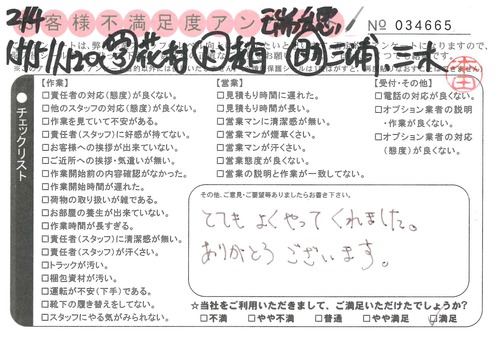 お客様不満足度アン
№ 034665
2/4
チェックリスト
【作業】
□責任者の対応(態度)が良くない。
□他のスタッフの対応(態度)が良くない。
□作業を見ていて不安がある。
□責任者(スタッフ)に好感が持てない。
□お客様への挨拶が出来ていない。
□ご近所への挨拶・気遣いが無い。
□作業開始前の内容確認がなかった。
□作業開始時間が遅れた。
□荷物の取り扱いが雑である。
□お部屋の養生が出来ていない。
□作業時間が長すぎる。
□責任者(スタッフ)に清潔感が無い。
□責任者(スタッフ)が汗くさい。
□トラックが汚い。
□梱包資材が汚い。
□運転が不安(下手)である。
□靴下の履き替えをしてない。
□スタッフにやる気がみられない。
【営業】
□見積もり時間に遅れた。
□見積もり時間が長い。
□営業マンに清潔感が無い。
□営業マンが煙草くさい。
□営業マンが汗くさい。
□営業態度が良くない。
□営業の説明と作業が一致してない。
【受付・その他】
□電話の対応が良くない。
□オプション業者の説明
・作業が良くない。
□オプション業者の対応
(態度)が良くない。
その他、ご意見・ご要望等ありましたらお書き下さい。
とてもよくやってくれました。
ありがとうございます。
☆当社をご利用いただきまして、ご満足いただけたでしょうか?
□不満 □やや不満 □普通 □やや満足 □満足